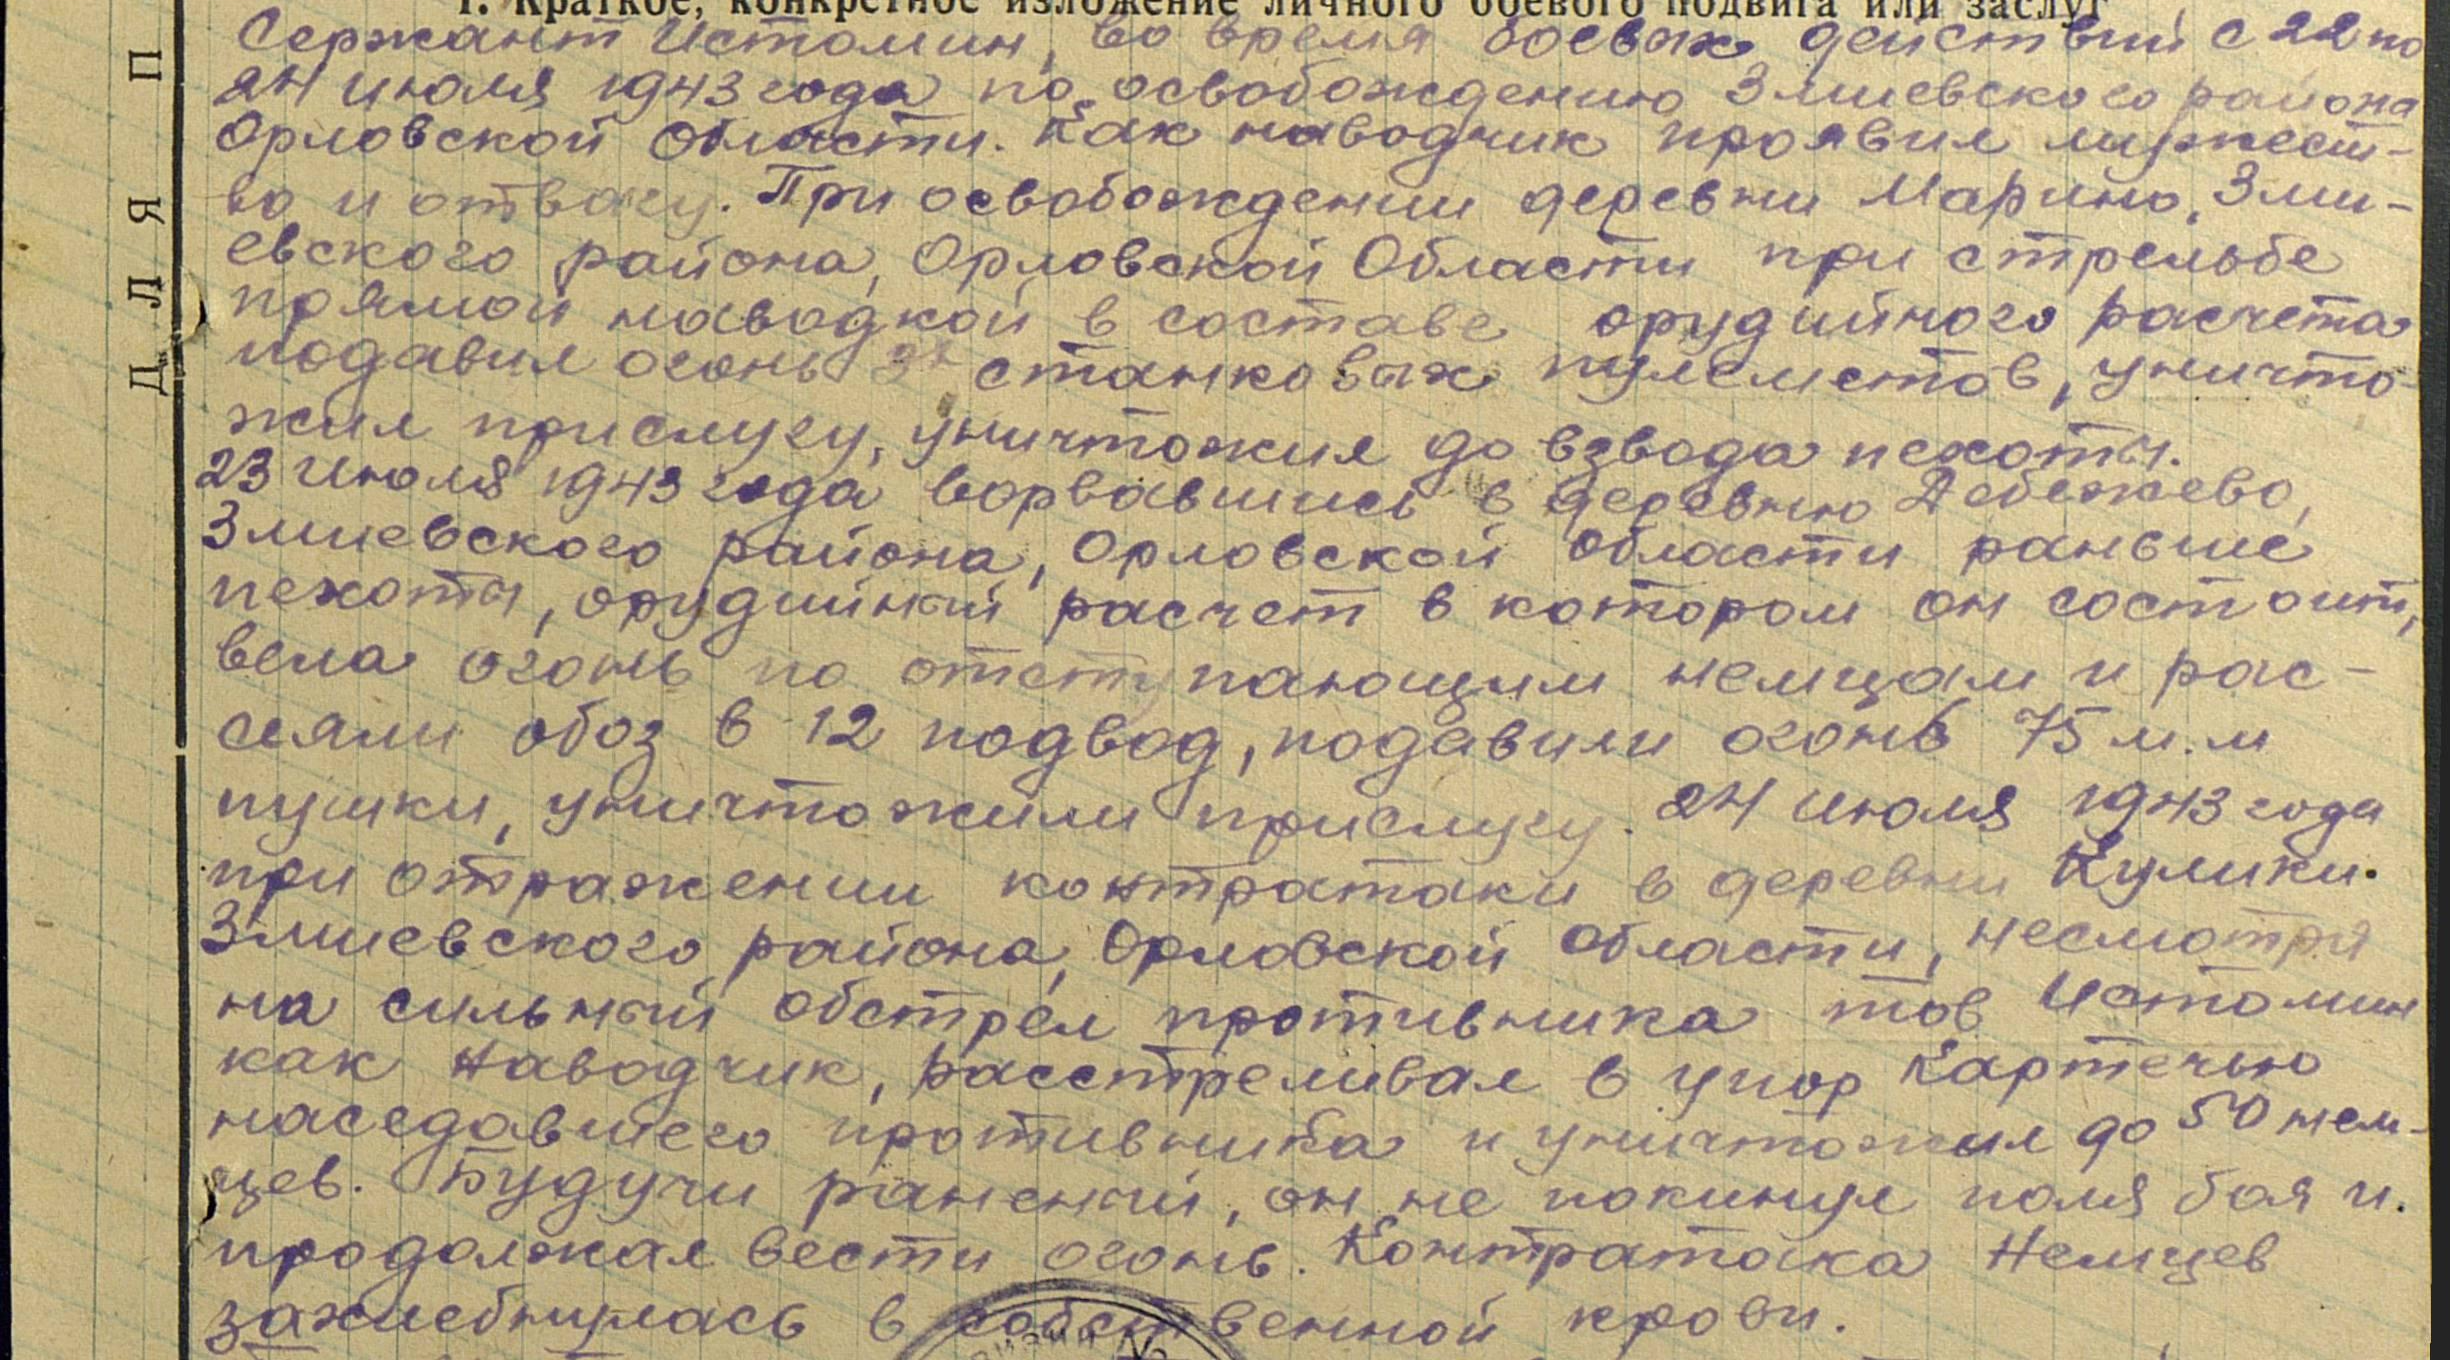 1. Краткое, конкретное изложение личного боевого подвига или заслуг
Сержант Истомин, во время боевых действий с 22 по
24 июля 1943 года по освобождению Змиевского района
Орловской области. Как наводчик проявил мужест-
во и отвагу. При освобождении деревни Марино, Зми-
евского района, Орловской Области при стрельбе
прямой наводкой в составе орудийного расчета
подавил огонь 3х станковых пулеметов, уничто-
жил прислугу, уничтожил до взвода пехоты.
23 июля 1943 года ворвавшись в деревню
Змиевского района, Орловской области раньше
пехоты, орудийный расчет в котором он состоит,
вела огонь по отступающим немцам и рас-
сеяли обоз в 12 подвод, подавили огонь 75 м.м
пушки, уничтожили прислугу. 24 июля 1943 года
при отражении контратаки в деревни Кулики.
Змиевского района, Орловской области, несмотря
на сильный обстрел противника тов Истомин
как наводчик, расстреливал в упор Картечью
наседавшего противника и уничтожил до 50 нем-
цев. Будучи раненый, он не покинул поля боя и.
продолжал вести огонь. Контратака Немцев
захлебнулась в собственной крови.
ДЛЯ П